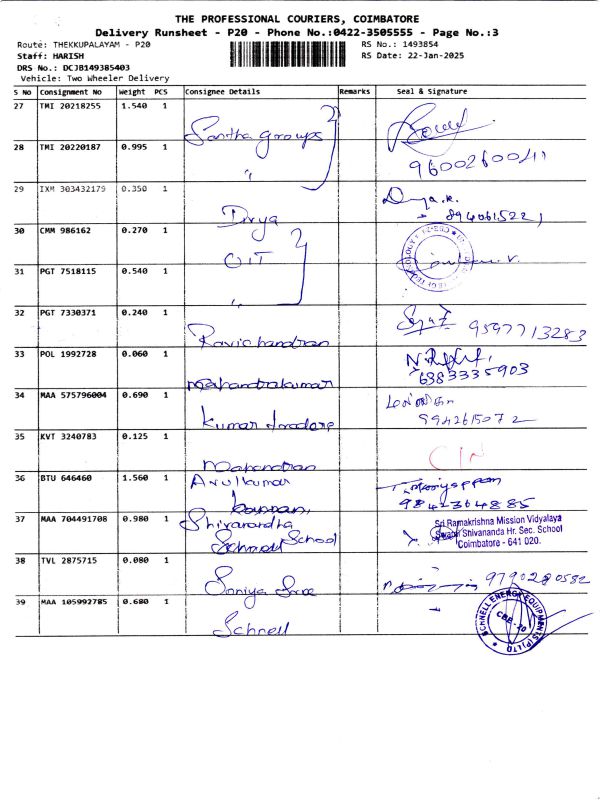 THE PROFESSIONAL COURIERS, COIMBATORE
Delivery Runsheet - P20 - Phone No.:0422-3505555 - Page No.:3
Route: THEKKUPALAYAM - P20 RS No.: 1493854
Staff: HARISH RS Date: 22-Jan-2025
DRS No.: DCJB149385403
Vehicle: Two Wheeler Delivery
S No Consignment No Weight PCS Consignee Details Remarks Seal & Signature
27 TMI 20218255 1.540 1
Santha groups
28 TMI 20220187 0.995 1 9600260041
"
29 IXM 303432179 0.350 1
Divya
30 CMM 986162 0.270 1
OIT
31 PGT 7518115 0.540 1
"
32 PGT 7330371 0.240 1 9597713283
Ravichandran
33 POL 1992728 0.060 1
6383335903
Mahandrakumar
34 MAA 575796004 0.690 1
Kumar
9942615072
35 KVT 3240783 0.125 1
Mahandran
36 BTU 646460 1.560 1 Arulkumar
37 MAA 704491708 0.980 1
School
Sri Ramakrishna Mission Vidyalaya
Swami Shivananda Hr. Sec. School
Coimbatore - 641 020.
38 TVL 2875715 0.080 1 9790280582
Soniya
39 MAA 105992785 0.680 1
Schnell
SCHNELL ENERGY EQUIPMENTS (P) LTD
CBE-20